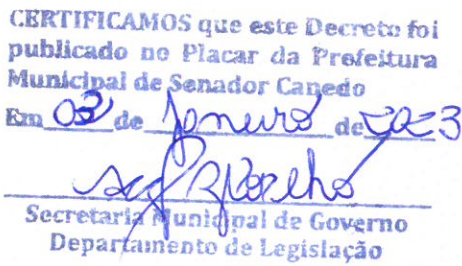 CERTIFICAMOS que este Decreto foi
publicado no Placar da Prefeitura
Municipal de Senador Canedo
Em 03 de Janeiro de 2023
Secretaria Municipal de Governo
Departamento de Legislação